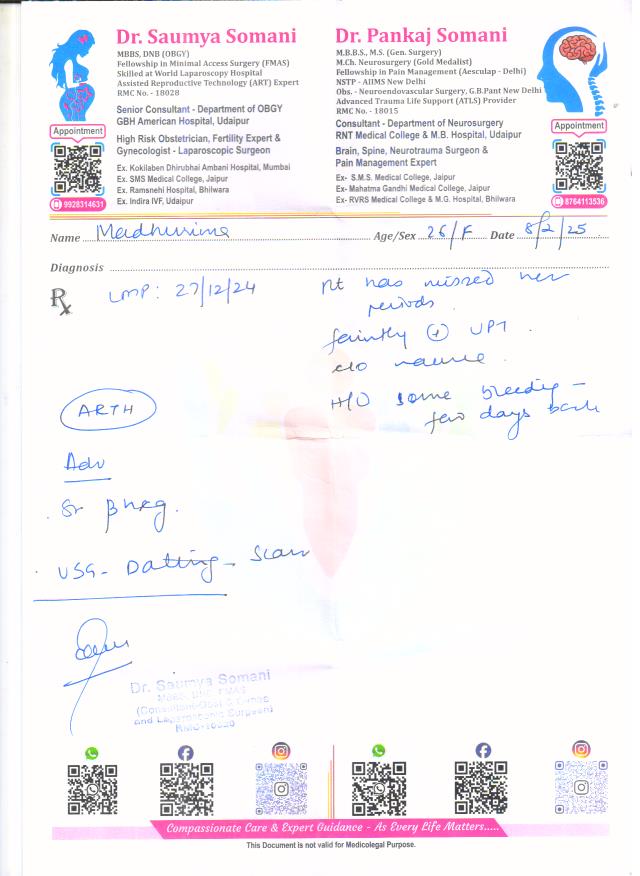 Dr. Saumya Somani
MBBS, DNB (OBGY)
Fellowship in Minimal Access Surgery (FMAS)
Skilled at World Laparoscopy Hospital
Assisted Reproductive Technology (ART) Expert
RMC No. - 18028
Senior Consultant - Department of OBGY
GBH American Hospital, Udaipur
High Risk Obstetrician, Fertility Expert &
Gynecologist - Laparoscopic Surgeon
Ex. Kokilaben Dhirubhai Ambani Hospital, Mumbai
Ex. SMS Medical College, Jaipur
Ex. Ramsnehi Hospital, Bhilwara
Ex. Indira IVF, Udaipur
Appointment
9928314631
Dr. Pankaj Somani
M.B.B.S., M.S. (Gen. Surgery)
M.Ch. Neurosurgery (Gold Medalist)
Fellowship in Pain Management (Aesculap - Delhi)
NSTP - AIIMS New Delhi
Obs. - Neuroendovascular Surgery, G.B.Pant New Delhi
Advanced Trauma Life Support (ATLS) Provider
RMC No. - 18015
Consultant - Department of Neurosurgery
RNT Medical College & M.B. Hospital, Udaipur
Brain, Spine, Neurotrauma Surgeon &
Pain Management Expert
Ex- S.M.S. Medical College, Jaipur
Ex- Mahatma Gandhi Medical College, Jaipur
Ex- RVRS Medical College & M.G. Hospital, Bhilwara
Appointment
8764113536
Name Madhurima Age/Sex 26/F Date 8/2/25
Diagnosis
Rx LMP: 27/12/24
pt has missed her
periods.
faintly (+) UPT.
c/o nausea.
H/O some bleeding -
few days back
ARTH
Adv
. Sr βhcg.
. USG - Dating - Scan
Dr. Saumya Somani
MBBS, DNB, FMAS
and Laparoscopic Surgeon)
Compassionate Care & Expert Guidance - As Every Life Matters.....
This Document is not valid for Medicolegal Purpose.